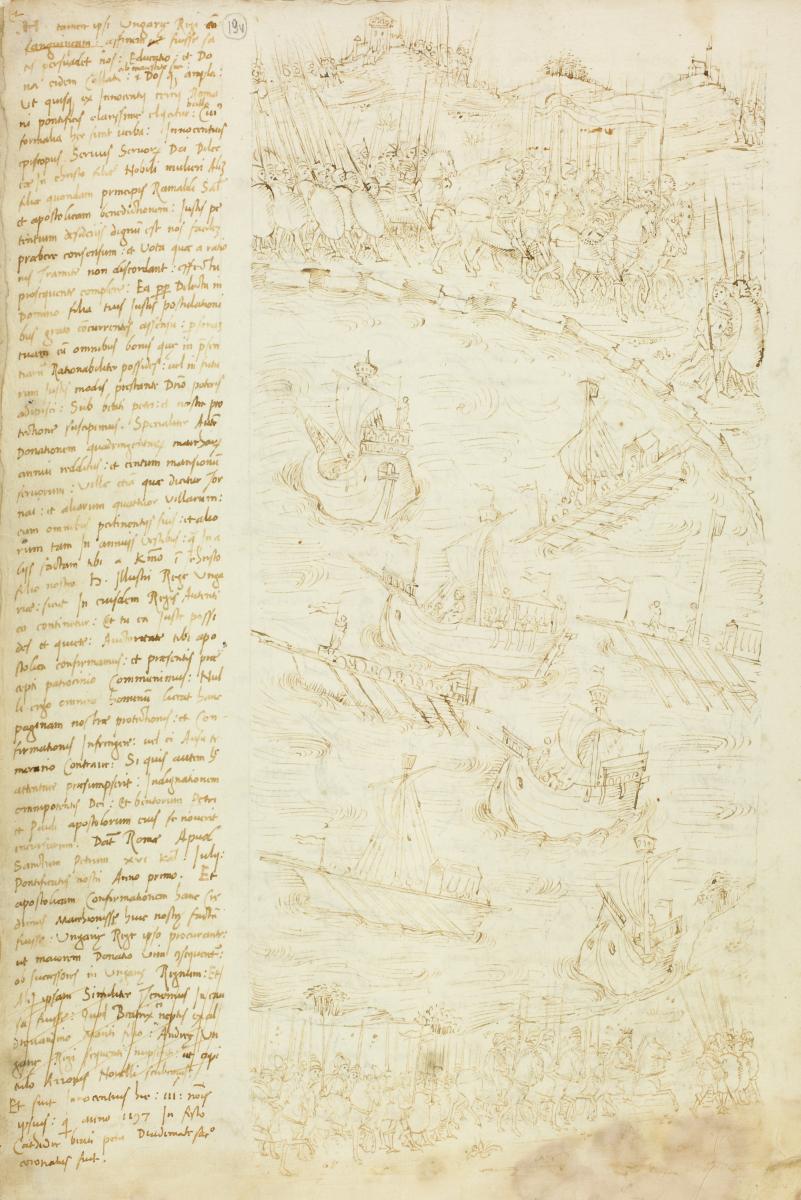 19v
tamen ipsi Ungarie Regi
fuisse
persuadet nos: et Do
na eidem Collati: Dos ampla:
Ut quisq ex Innocentij tertij Roma
ni pontificis clarissime elicitur: bulla
formalia hec sunt verba: Innocentius
episcopus Servus Servor Dei Dilec
te In christo filie Nobili mulieri Aliz
filie quondam principis Sal
et apostolicam benedictionem: Justis pe
tentium desiderijs dignum est nos facilez
prabere consensum: et Vota que a ratio
nis tramite non discordant: effectu
prosequente complere: Ea pp Dilecta in
Domino filia tuis Justis postulationi
bus grato concurrentes assensu: psonaz
tuam cu omnibus bonis que in psen
tiaru Rationabiliter possides: vel in futu
rum Justis modis prestante Dno poteris
adipisci: Sub beati petri: et nostra pro
tectione suscipimus. Specialiter Aute
Donationem
annui redditus: et centum mansionu
servorum: Ville etia que dicitur for
nai: et aliarum quattuor Villarum:
cum omnibus pertinentijs suis: et alio
rum tam In annuis q In a
lijs factam tibi a Kmo i christo
filio nostro H. Illustri Rege Unga
rie: sicut In eiusdem Regis Autenti
co continetur: Et tu ea Juste possi
des et quiete: Auctoritate tibi apo
stolica confirmamus: et presentis
cepti patrocinio Communimus: Nul
li ergo omnino hominu liceat hanc
paginam nostre protectionis: et Con
firmationis Infringere: vel ei Ausu te
merario Contraire: Si quis autem h
attentare presumpserit: Indignationem
omnipotentis Dei: Et beatorum Petri
et Pauli apostolorum eius se noverit
incursurum: Dat Rome Apud
Sanctum Petrum XVI Kal Julij:
Pontificatus nostri Anno primo. Et
apostolicam Confirmationem hanc
Marchionisse huic nostre facta
fuisse: Ungarie Rege ipso procurante:
ut maiorem Donatio
ob successores in Ungarie Regnum: Et
ipsam Similiter Ienerius
fuisse: Beatrix neptis ex al
Andree Un
garie Regi sequenti nupsisse: ut opi
tulo Novelli
Et fuit Innocentius hic: III: nois
ipsius: q anno 1197 In festo
Cathedre pri
coronatus fuit.